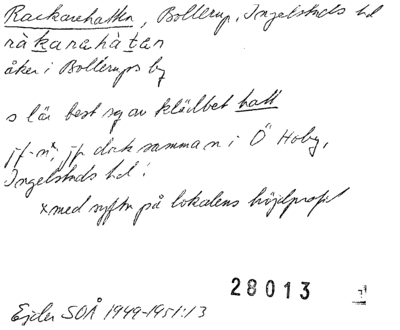 Rackarehatten, Bollerup, Ingelstads hd
ràkarahàtan
åker i Bollerups by
s lär best sg av klädbet hatt
jf-nˣ, jfr dock samma n i Ö Hoby,
Ingelstads hd.
x med syftn på lokalens höjdprofil
28013
Ejder SOÅ 1949-1951:13